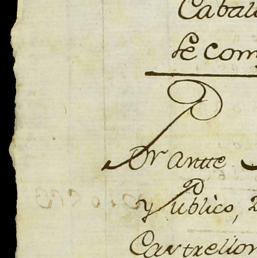 Caball
se com
Por antte
y Publico, 2
Castrellon